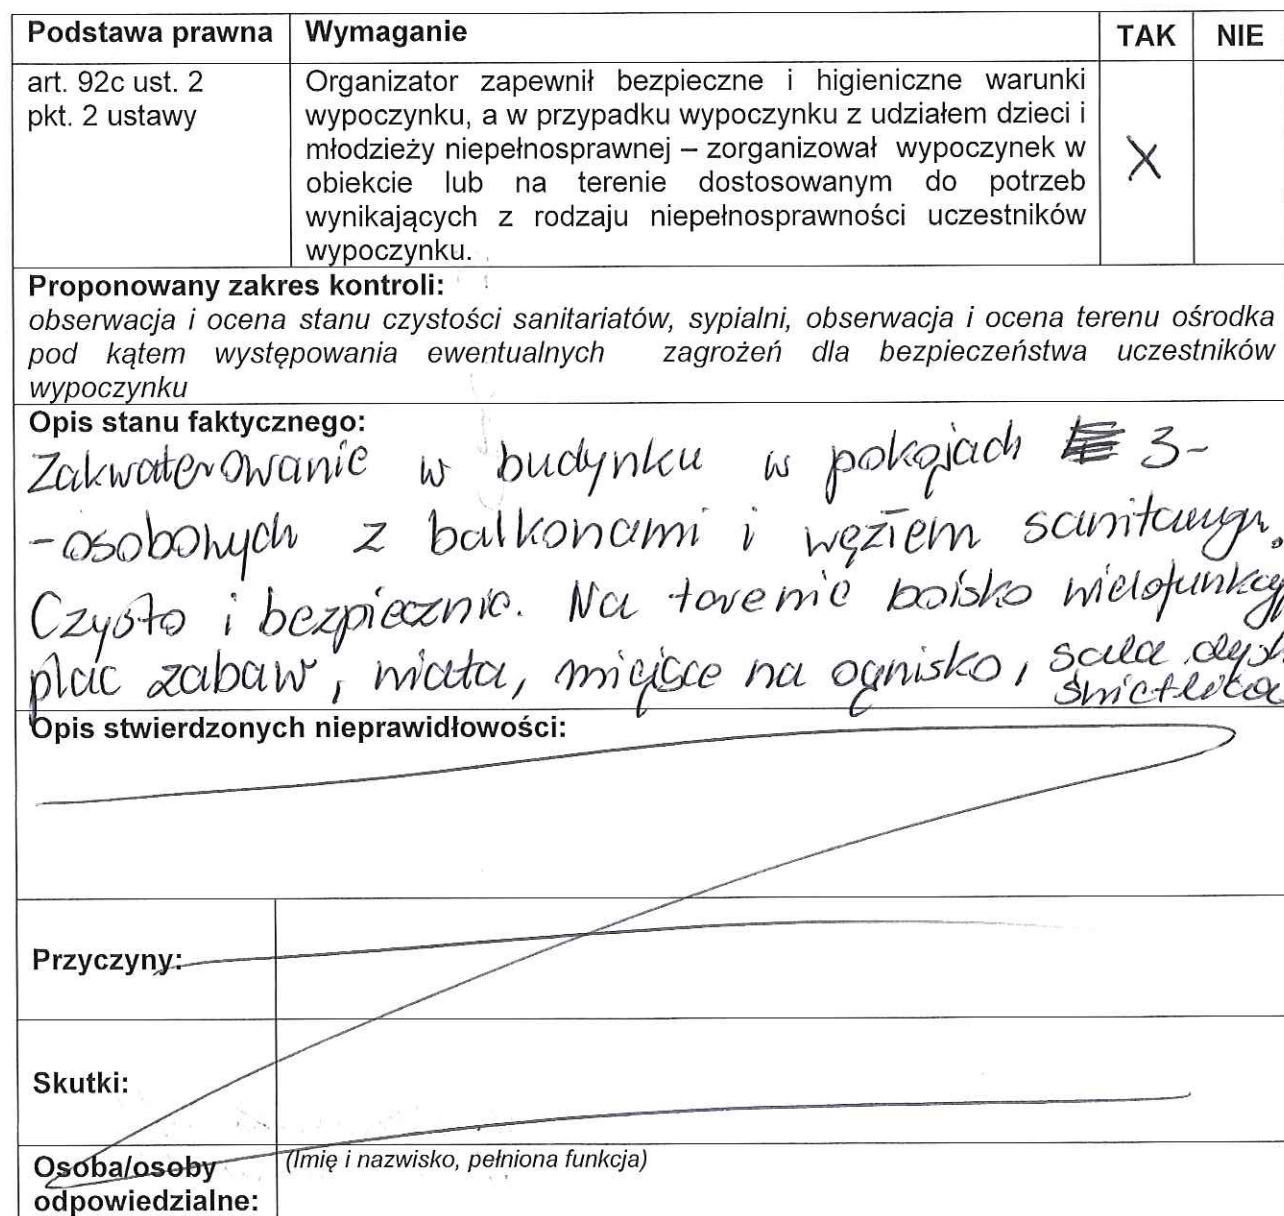 Podstawa prawna Wymaganie TAK NIE
art. 92c ust. 2 Organizator zapewnił bezpieczne i higieniczne warunki
pkt. 2 ustawy wypoczynku, a w przypadku wypoczynku z udziałem dzieci i
młodzieży niepełnosprawnej – zorganizował wypoczynek w X
obiekcie lub na terenie dostosowanym do potrzeb
wynikających z rodzaju niepełnosprawności uczestników
wypoczynku.
Proponowany zakres kontroli:
obserwacja i ocena stanu czystości sanitariatów, sypialni, obserwacja i ocena terenu ośrodka
pod kątem występowania ewentualnych zagrożeń dla bezpieczeństwa uczestników
wypoczynku
Opis stanu faktycznego:
Zakwaterowanie w budynku w pokojach 3-
-osobowych z balkonami i węzłem sanitarnym.
Czysto i bezpiecznie. Na terenie boisko wielofunkcyj
plac zabaw, wiata, miejsce na ognisko, sala dysk
świetlica
Opis stwierdzonych nieprawidłowości:
Przyczyny:
Skutki:
Osoba/osoby (Imię i nazwisko, pełniona funkcja)
odpowiedzialne: